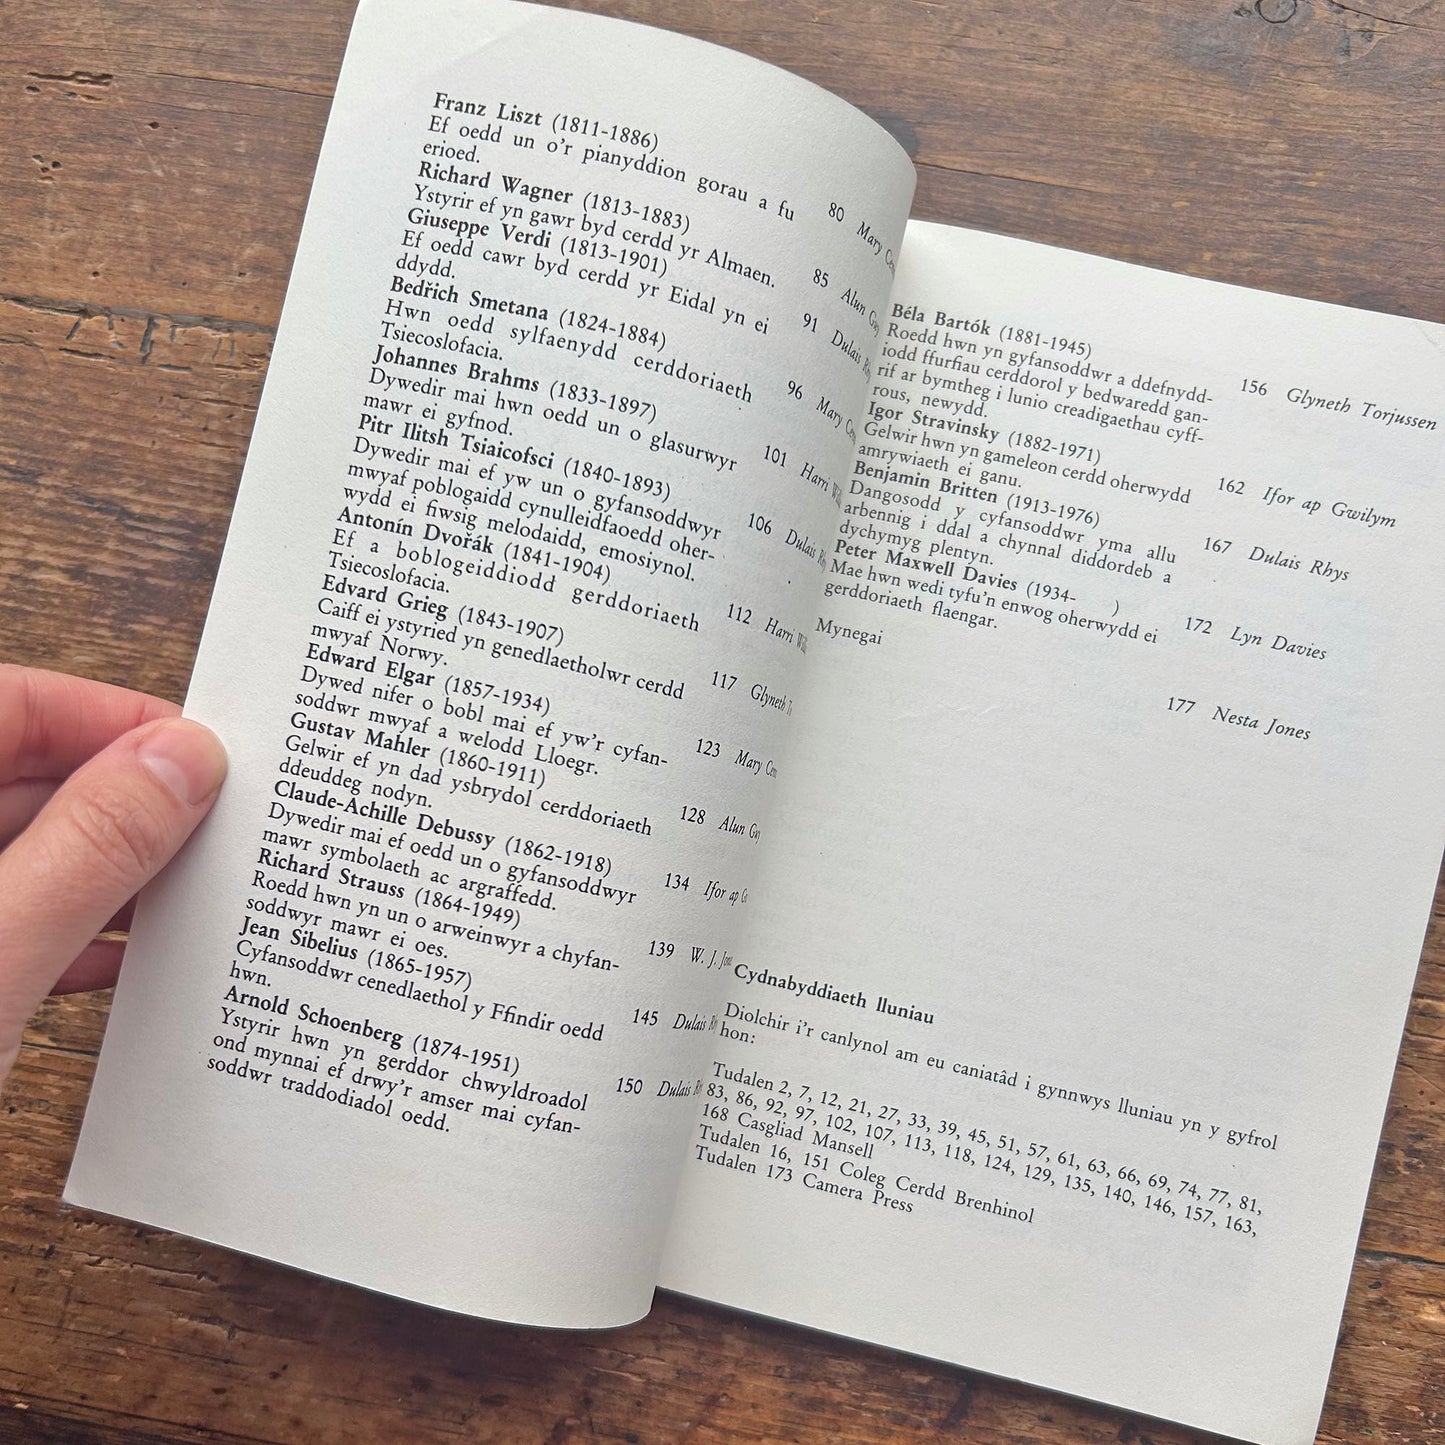 Franz Liszt (1811-1886)
Ef oedd un o'r pianyddion gorau a fu
erioed. 80 Mary
Richard Wagner (1813-1883)
Ystyrir ef yn gawr byd cerdd yr Almaen. 85 Alun
Giuseppe Verdi (1813-1901)
Ef oedd cawr byd cerdd yr Eidal yn ei
ddydd. 91 Dulais
Bedřich Smetana (1824-1884)
Hwn oedd sylfaenydd cerddoriaeth
Tsiecoslofacia. 96 Mary
Johannes Brahms (1833-1897)
Dywedir mai hwn oedd un o glasurwyr
mawr ei gyfnod. 101 Harri
Pitr Ilitsh Tsiaicofsci (1840-1893)
Dywedir mai ef yw un o gyfansoddwyr
mwyaf poblogaidd cynulleidfaoedd oher-
wydd ei fiwsig melodaidd, emosiynol. 106 Dulais
Antonín Dvořák (1841-1904)
Ef a boblogeiddiodd gerddoriaeth
Tsiecoslofacia. 112 Harri
Edvard Grieg (1843-1907)
Caiff ei ystyried yn genedlaetholwr cerdd
mwyaf Norwy. 117 Glyneth
Edward Elgar (1857-1934)
Dywed nifer o bobl mai ef yw'r cyfan-
soddwr mwyaf a welodd Lloegr. 123 Mary
Gustav Mahler (1860-1911)
Gelwir ef yn dad ysbrydol cerddoriaeth
ddeuddeg nodyn. 128 Alun
Claude-Achille Debussy (1862-1918)
Dywedir mai ef oedd un o gyfansoddwyr
mawr symbolaeth ac argraffedd. 134 Ifor ap
Richard Strauss (1864-1949)
Roedd hwn yn un o arweinwyr a chyfan-
soddwyr mawr ei oes. 139 W. J.
Jean Sibelius (1865-1957)
Cyfansoddwr cenedlaethol y Ffindir oedd
hwn. 145 Dulais
Arnold Schoenberg (1874-1951)
Ystyrir hwn yn gerddor chwyldroadol
ond mynnai ef drwy'r amser mai cyfan-
soddwr traddodiadol oedd. 150 Dulais
Béla Bartók (1881-1945)
Roedd hwn yn gyfansoddwr a ddefnydd-
iodd ffurfiau cerddorol y bedwaredd gan-
rif ar bymtheg i lunio creadigaethau cyff-
rous, newydd. 156 Glyneth Torjussen
Igor Stravinsky (1882-1971)
Gelwir hwn yn gameleon cerdd oherwydd
amrywiaeth ei ganu. 162 Ifor ap Gwilym
Benjamin Britten (1913-1976)
Dangosodd y cyfansoddwr yma allu
arbennig i ddal a chynnal diddordeb a
dychymyg plentyn. 167 Dulais Rhys
Peter Maxwell Davies (1934- )
Mae hwn wedi tyfu'n enwog oherwydd ei
gerddoriaeth flaengar. 172 Lyn Davies
Mynegai 177 Nesta Jones
Cydnabyddiaeth lluniau
Diolchir i'r canlynol am eu caniatâd i gynnwys lluniau yn y gyfrol
hon:
Tudalen 2, 7, 12, 21, 27, 33, 39, 45, 51, 57, 61, 63, 66, 69, 74, 77, 81,
83, 86, 92, 97, 102, 107, 113, 118, 124, 129, 135, 140, 146, 157, 163,
168 Casgliad Mansell
Tudalen 16, 151 Coleg Cerdd Brenhinol
Tudalen 173 Camera Press